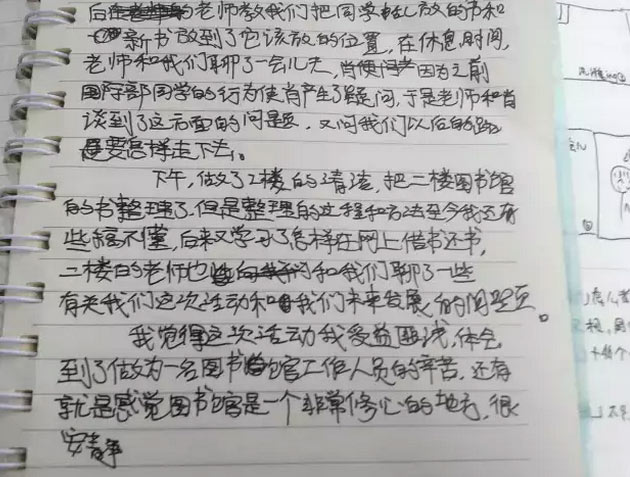 后老师教我们把同学乱放的书和
新书放到了它该放的位置，在休息时间，
老师和我们聊了一会儿天，肖便问老因为之前
国际部同学的行为使肖产生了疑问，于是老师和肖
谈到了这方面的问题，又问我们以后的路
是要怎样走下去。
下午，做了2楼的清洁，把二楼图书馆
的书整理了，但是整理的过程和方法至今我还有
些搞不懂，后来又学习了怎样在网上借书还书，
二楼的老师也和我们聊了一些
有关我们这次活动和我们未来发展的问题。
我觉得这次活动我受益匪浅，体会
到了做为一名图书馆工作人员的辛苦，还有
就是感觉图书馆是一个非常修心的地方，很
安静